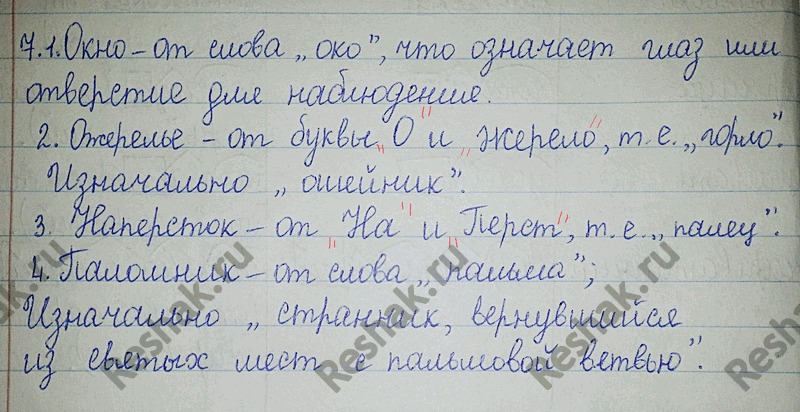 7.1. Окно – от слова „око”, что означает глаз или
отверстие для наблюдение.
2. Ожерелье – от буквы „О” и „жерело”, т.е. „горло”.
Изначально „ошейник”.
3. Наперсток – от „На” и „Перст”, т.е. „палец”.
4. Паломник – от слова „пальма”;
Изначально „странник, вернувшийся
из святых мест с пальмовой ветвью”.
Reshak.ru
Reshak.ru
Reshak.ru
Reshak.ru